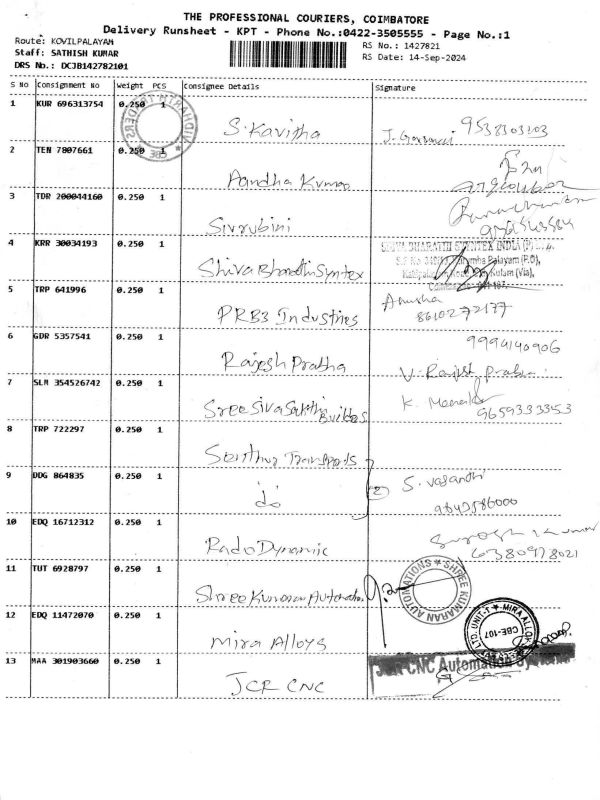 THE PROFESSIONAL COURIERS, COIMBATORE
Delivery Runsheet - KPT - Phone No.:0422-3505555 - Page No.:1
Route: KOVILPALAYAM
Staff: SATHISH KUMAR
DRS No.: DCJB142782101
RS No.: 1427821
RS Date: 14-Sep-2024
S No Consignment No Weight PCS Consignee Details Signature
1 KUR 696313754 0.250 1 S. Kavitha
2 TEN 7807661 0.250 1 Aandha Kumar
3 TDR 200044160 0.250 1 Sivrubini
4 KRR 30034193 0.250 1 Shiva Bharathi Syntex
SHIVA BHARATHI SYNTEX INDIA (P)
5 TRP 641996 0.250 1 PRB3 Industries Anusha
8610272177
6 GDR 5357541 0.250 1 Rajesh Prabha 9994140906
V. Rajesh
7 SLM 354526742 0.250 1 Sree Siva Sakthi Builders K.
9659333353
8 TRP 722297 0.250 1 Transports
9 DDG 864835 0.250 1 do S. Vasanthi
9842586000
10 EDQ 16712312 0.250 1 Rado Dynamic Kumar
6380978021
11 TUT 6928797 0.250 1 Shree Kumaran
SHREE KUMARAN AUTOMATIONS
12 EDQ 11472070 0.250 1 Mira Alloys
CBE-107
13 MAA 301903660 0.250 1 JCR CNC
JCR CNC Automation